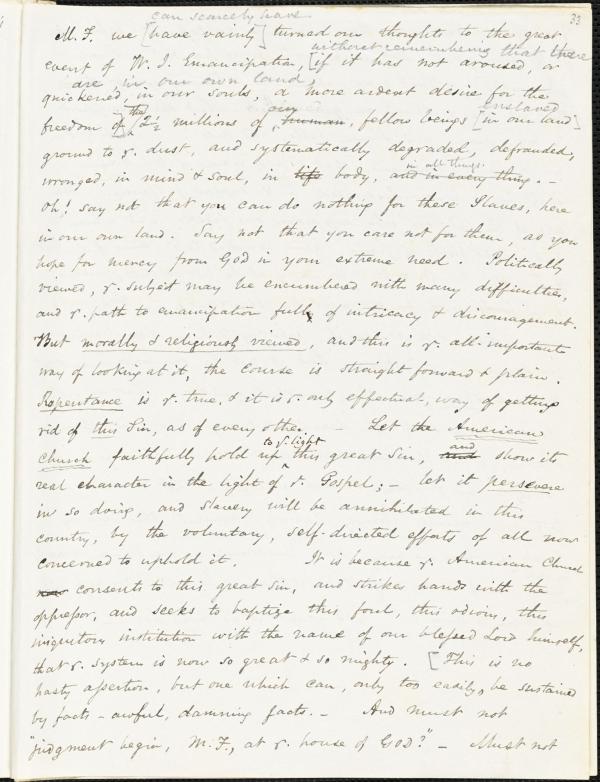 33
can scarcely have
M. F. we [have vainly] turned our thoughts to the great
without remembering that there
event of W. I. Emancipation, [if it has not aroused, or
are, in our own land
quickened, in our souls, a more ardent desire for the
the our enslaved
freedom of 2½ millions of human, fellow beings [in our land]
ground to ye. dust, and systematically degraded, defrauded,
in all things.
wronged, in mind & soul, in life body, and in every thing. –
Oh! say not that you can do nothing for these Slaves, here
in our own land. Say not that you care not for them, as you
hope for mercy from God in your extreme need. Politically
viewed, ye. subject may be encumbered with many difficulties,
and ye. path to emancipation full of intricacy & discouragement.
But morally & religiously viewed, and this is ye. all-important
way of looking at it, the course is straight forward & plain.
Repentance is ye. true, & it is ye. only effectual, way of getting
rid of this Sin, as of every other. – Let the American
to ye. light and
Church faithfully hold up this great Sin, and show its
real character in the light of ye. Gospel; – let it persevere
in so doing, and Slavery will be annihilated in this
country, by the voluntary, self-directed efforts of all now
concerned to uphold it. It is because ye. American Church
now consents to this great Sin, and strikes hands with the
oppressor, and seeks to baptize this foul, this odious, this
iniquitous institution with the name of our blessed Lord himself,
that ye. system is now so great & so mighty. [This is no
hasty assertion, but one which can, only too easily, be sustained
by facts – awful, damning facts. – And must not
"judgment begin, M. F., at ye. house of God?" – Must not